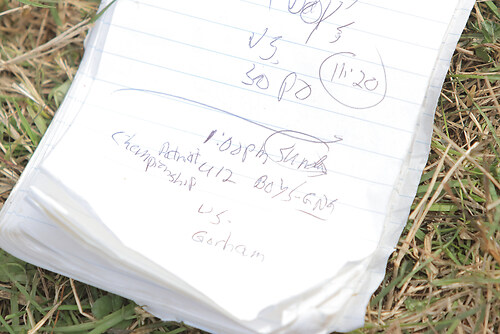 Boys
vs.
SOPO 11:20
1:00pm Sunday
Patriot U12 BOYS-GNG
Championship
vs.
Gorham